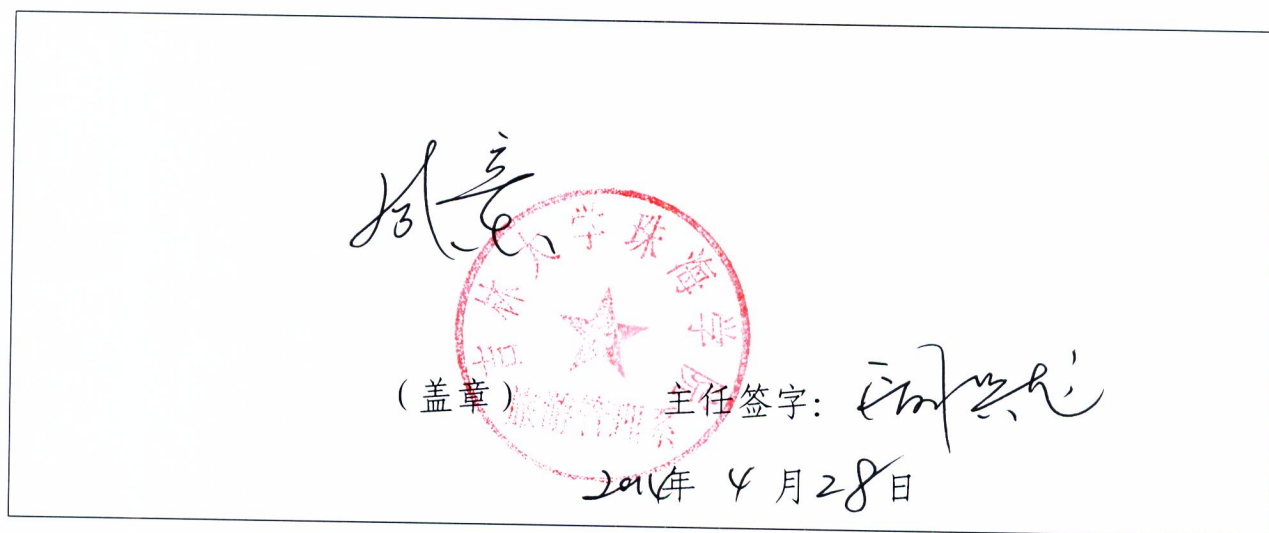 同意
吉林大学珠海学院
旅游管理系
(盖章) 主任签字:
2014年 4月28日